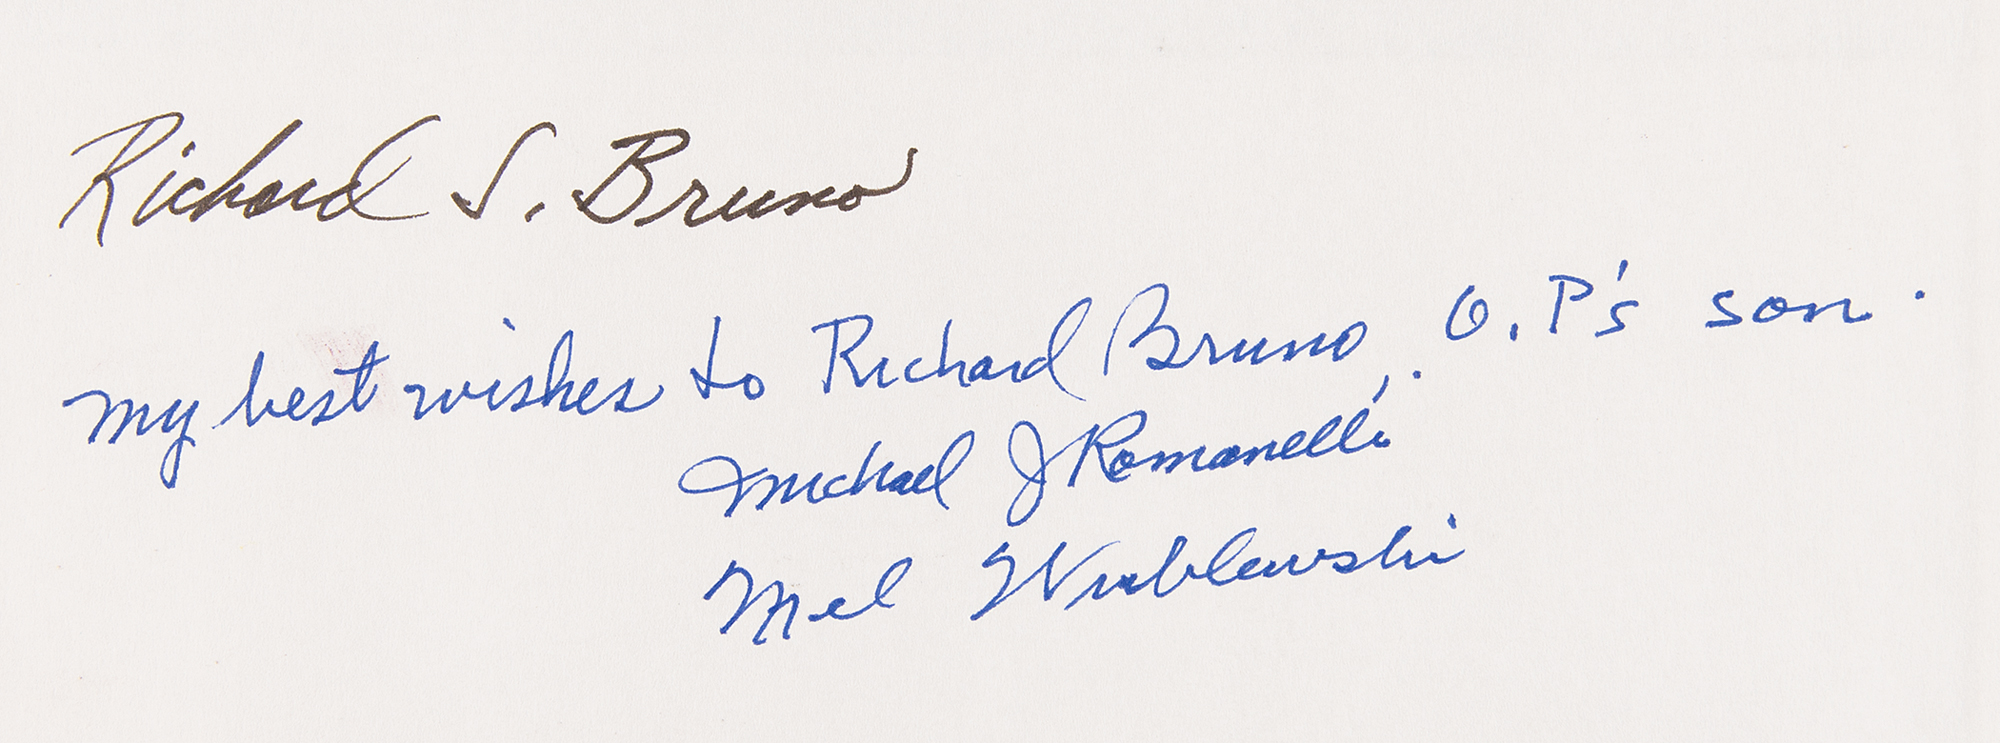 Richard S. Bruno
My best wishes to Richard Bruno, O.P's son.
Michael J Romanelli
Mel Wrublewski